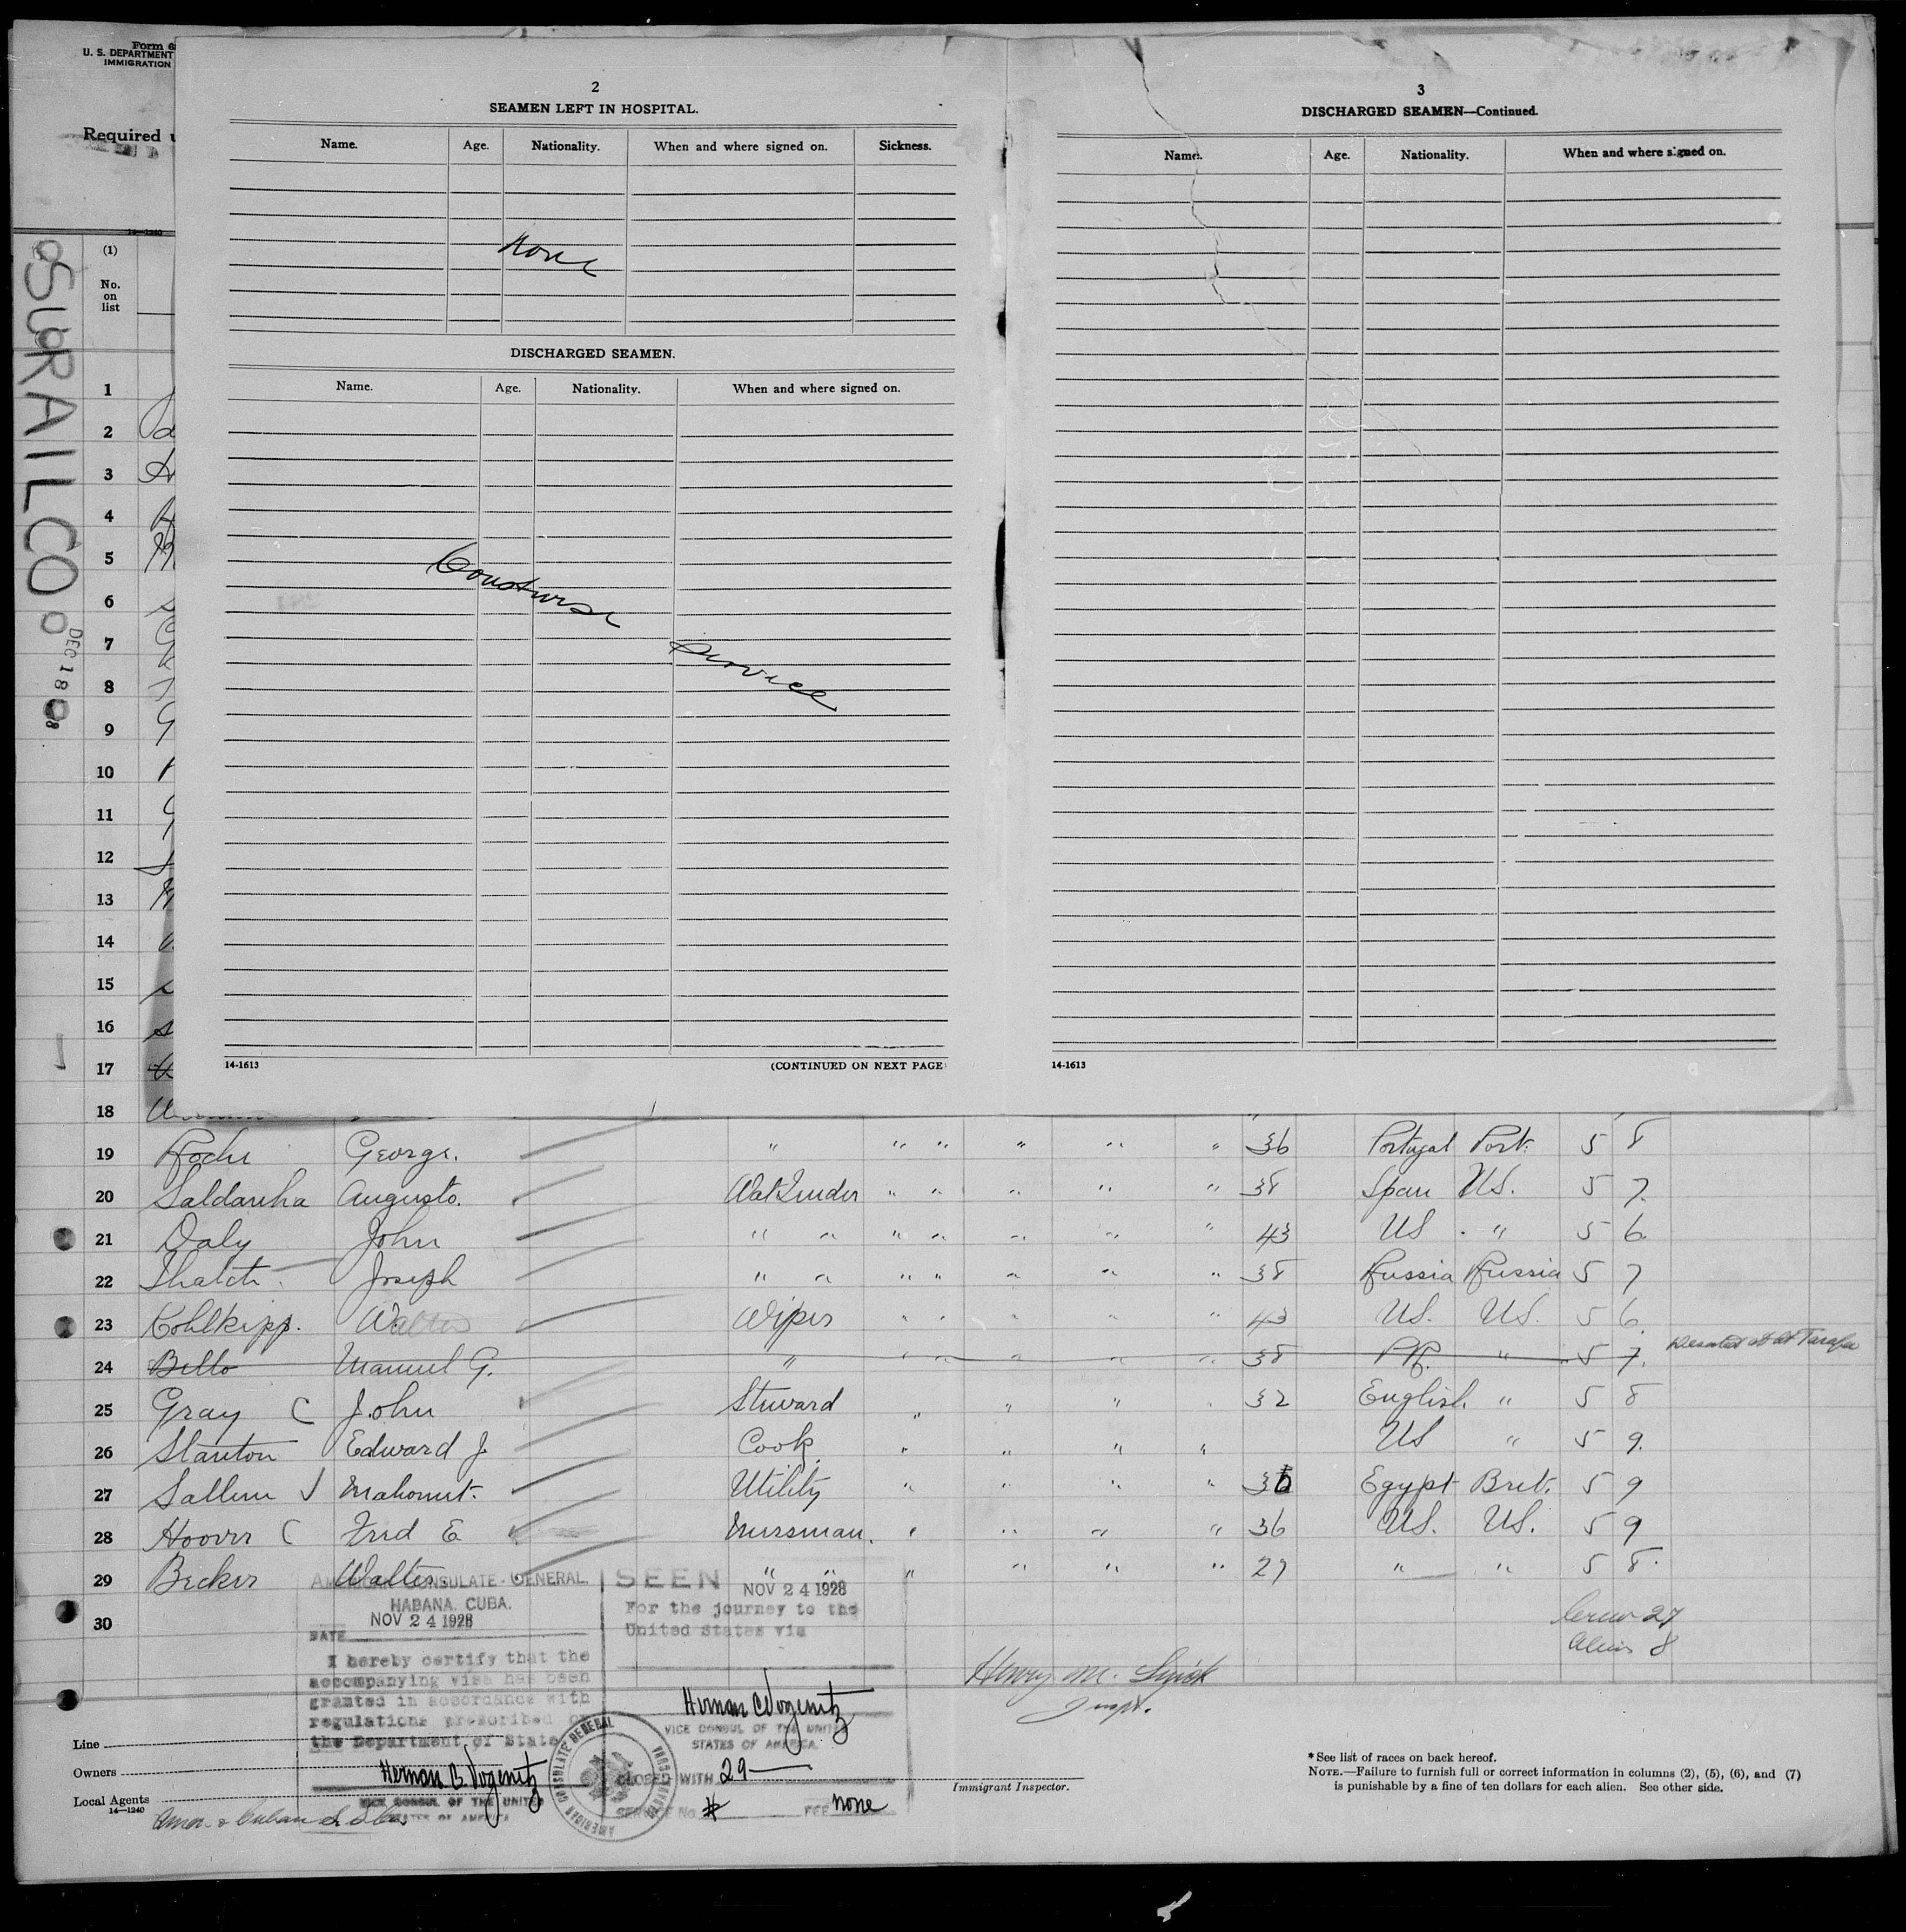 Form 6
U. S. DEPARTMENT
IMMIGRATION
Required
14—1240
(1)
No.
on
list
SURAILCO
DEC 18
2
SEAMEN LEFT IN HOSPITAL.
Name. Age. Nationality. When and where signed on. Sickness.
None
DISCHARGED SEAMEN.
Name. Age. Nationality. When and where signed on.
Coastwise
Service
14-1613 (CONTINUED ON NEXT PAGE
3
DISCHARGED SEAMEN—Continued.
Name. Age. Nationality. When and where signed on.
14-1613
1
2
3
4
5
6
7
8
9
10
11
12
13
14
15
16
17
18
19 Roche George. " " " " " " 36 Portugal Port. 5 8
20 Saldanha Augusto. Wat Tender " " " " " 38 Spain US. 5 7.
21 Daly John " " " " " " " 43 US " 5 6.
22 Joseph " " " " " " " 38 Russia Russia 5 7
23 Kohlkipp. Walter Wiper " " " " " 43 US. US. 5 6.
24 Bello Manuel G. " " " " " " 38 P.R. " 5 7. Deserted at Tarafa
25 Gray C John Steward " " " " 32 English " 5 8
26 Stanton Edward J. Cook " " " " US " 5 9.
27 Sallem J Mahomet. Utility " " " " 36 Egypt Brit. 5 9
28 Hoover C Fred E Messman. " " " " 36 US. US. 5 9
29 Becker Walter " " " " " " 29 " " 5 8.
30
Crew 27
Aliens 8
AMERICAN CONSULATE-GENERAL.
HABANA, CUBA.
NOV 24 1928
DATE
I hereby certify that the
accompanying visa has been
granted in accordance with
regulations prescribed
the Department of State
VICE CONSUL OF THE UNITED
STATES OF AMERICA
SEEN
NOV 24 1928
For the journey to the
United States via
VICE CONSUL OF THE UNITED
STATES OF AMERICA.
CLOSED WITH 29
SERVICE No. # FEE none
AMERICAN CONSULATE GENERAL
Henry M.
Inspt.
Immigrant Inspector.
Line
Owners
Local Agents
14—1240
* See list of races on back hereof.
NOTE.—Failure to furnish full or correct information in columns (2), (5), (6), and (7)
is punishable by a fine of ten dollars for each alien. See other side.